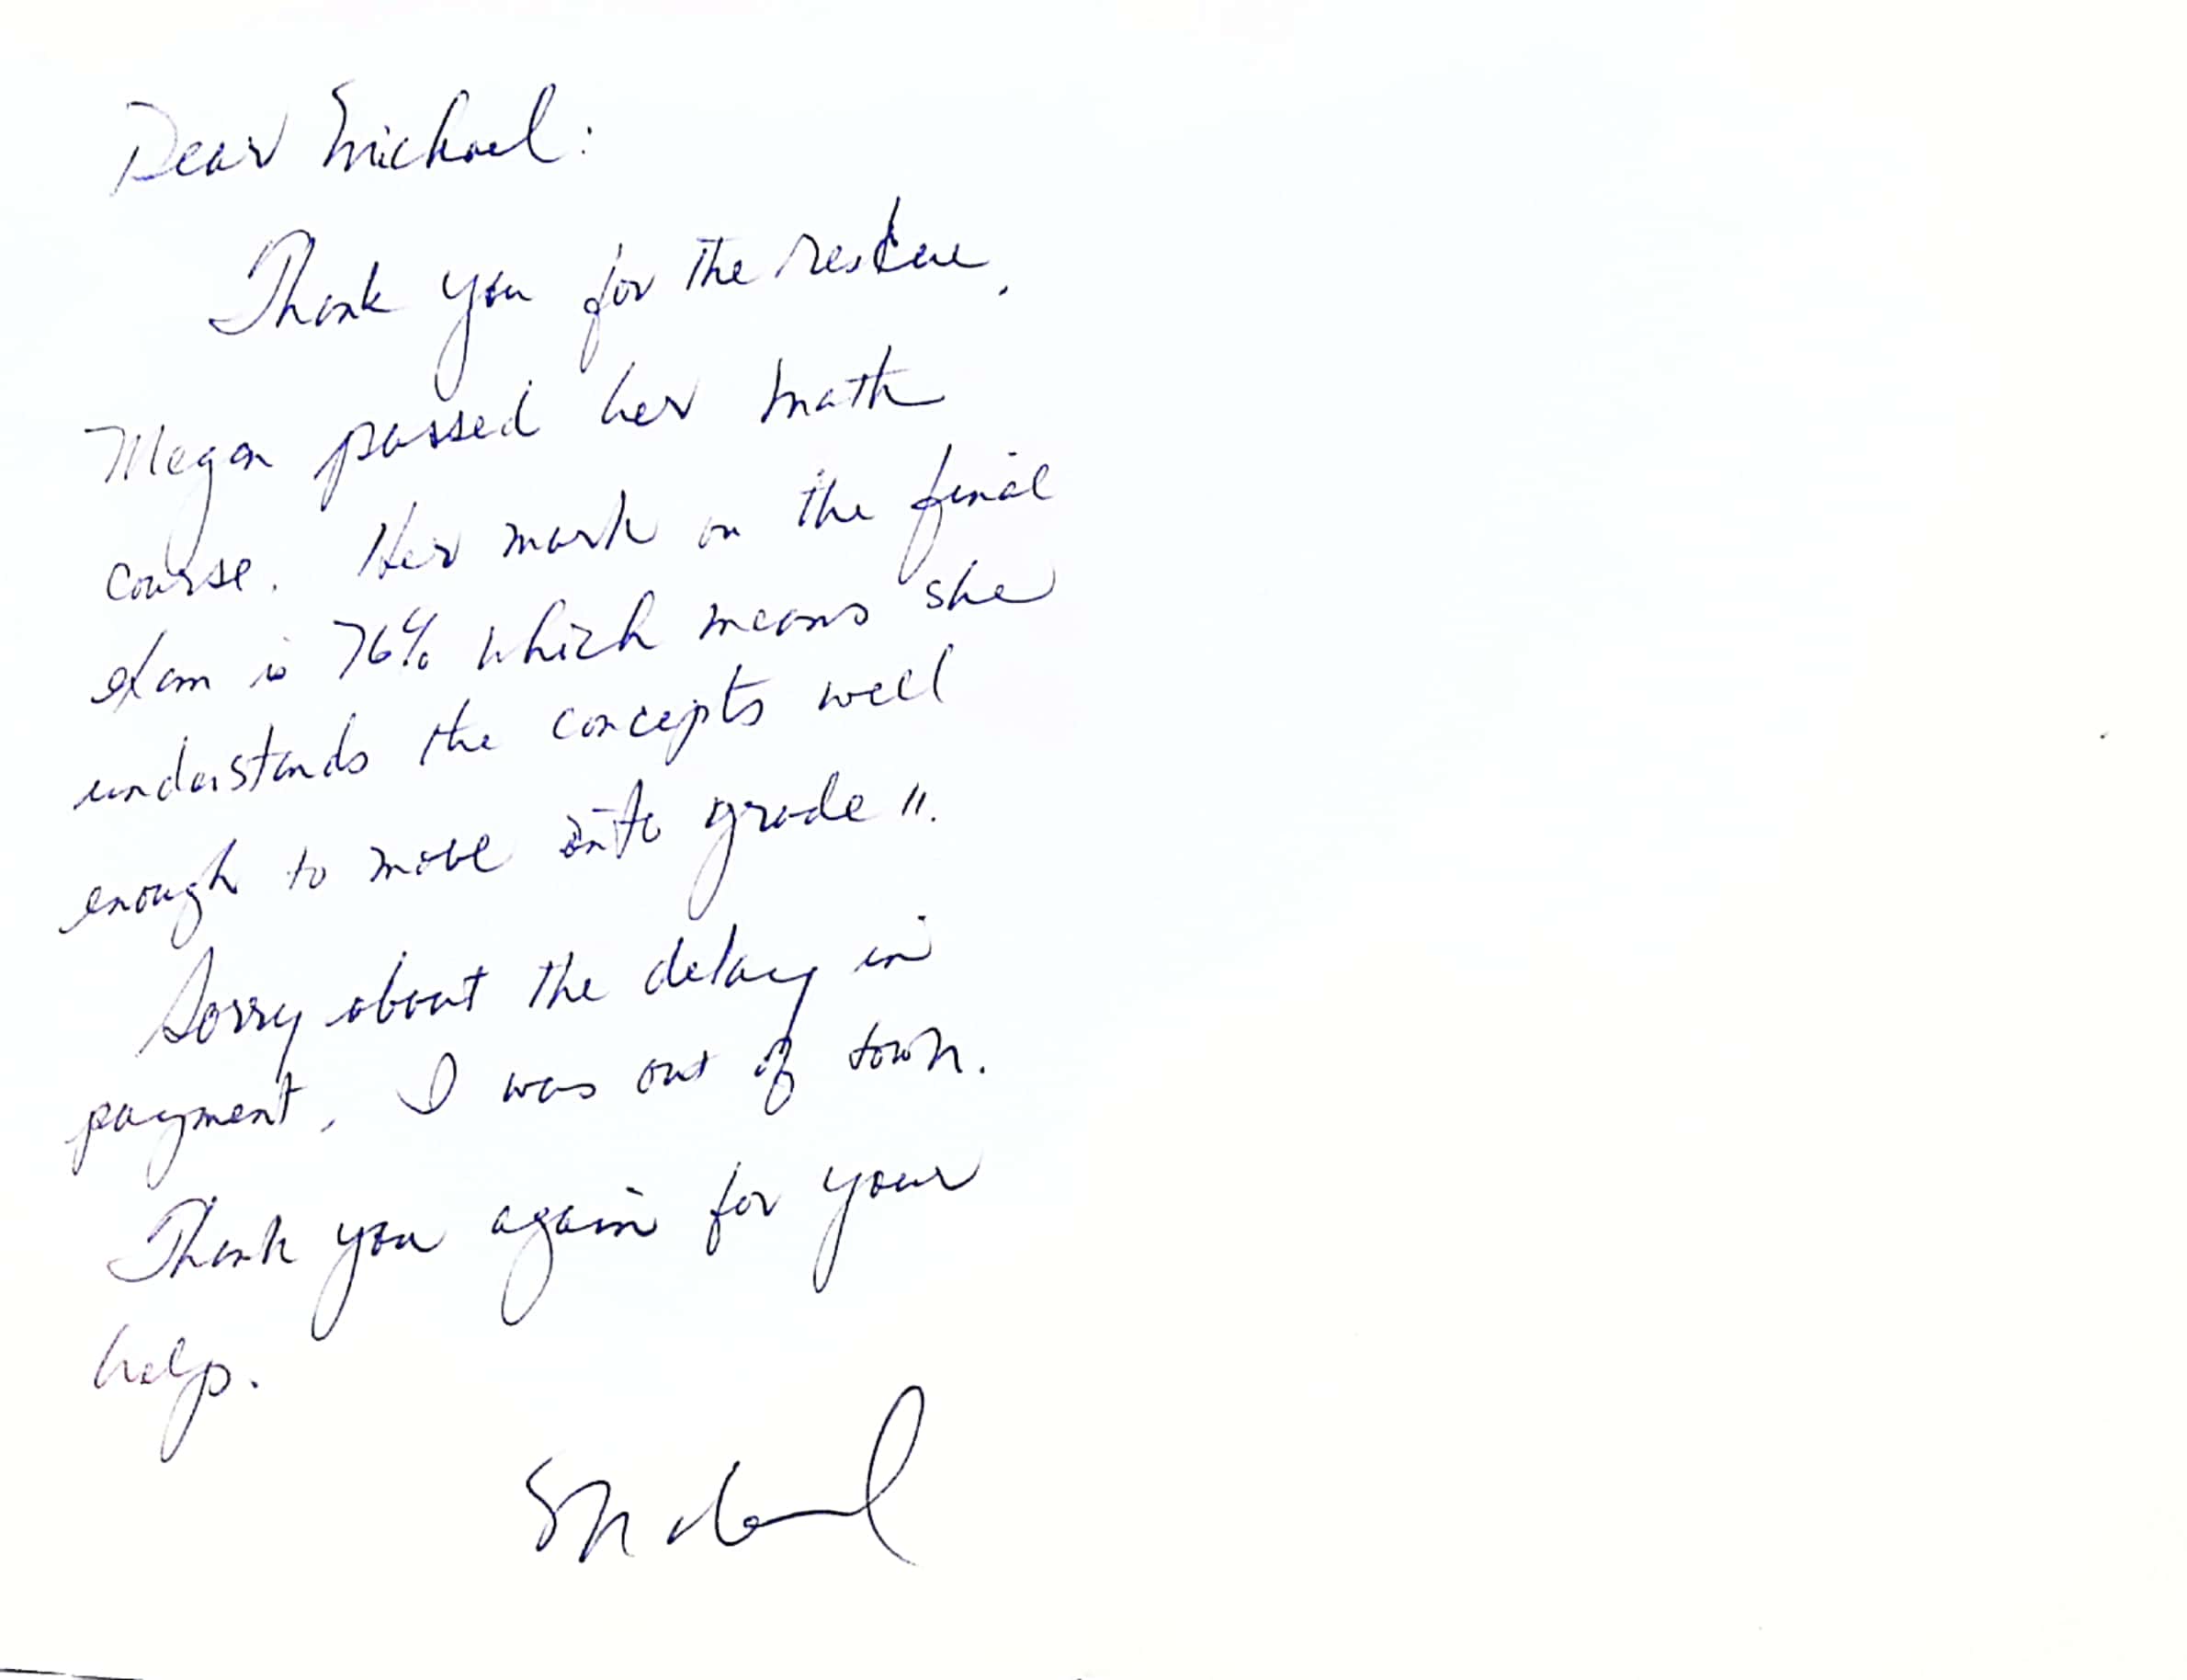 Dear Michael:
Thank you for the rescue.
Megan passed her math
course. Her mark on the final
exam is 76% which means she
understands the concepts well
enough to move into grade 11.
Sorry about the delay in
payment, I was out of town.
Thank you again for your
help.